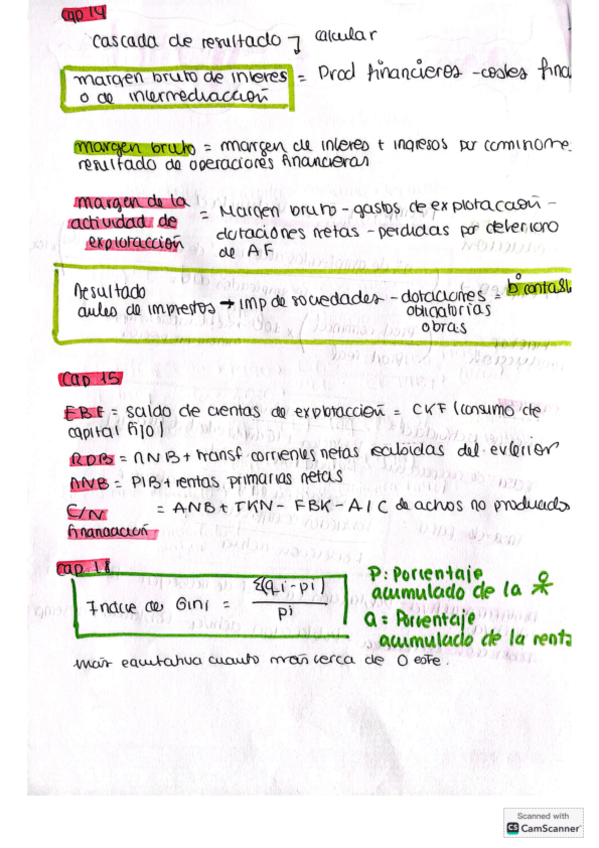 Cap 14
Cascada de resultado → calcular
margen bruto de interes = Prod financieros - costes fina
o de intermediaccioñ
margen bruto = margen de interes + ingresos por
resultado de operaciones financieras
margen de la
actividad de
explotacción
= Margen bruto - gastos de explotacaciòn -
dotaciones netas - perdidas por deterioro
de AF
Resultado
antes de impuestos → imp de sociedades - dotaciones = bº contabl
obligatorias
obras
Cap 15
EBE = saldo de cuentas de explotaccioñ = CKF (consumo de
capital fijo)
RDB = RNB + transf corrientes netas recibidas del exterior
RNB = PIB + rentas primarias netas
C/N = ANB + TKN - FBK - A/C de achos no producidos
financiacioñ
Cap 18
Indice de Gini = Σ(qi - pi) / pi
P: Porcentaje
acumulado de la
Q = Porcentaje
acumulado de la renta
mas equitativa cuanto mas cerca de 0 este.
Scanned with
CS CamScanner